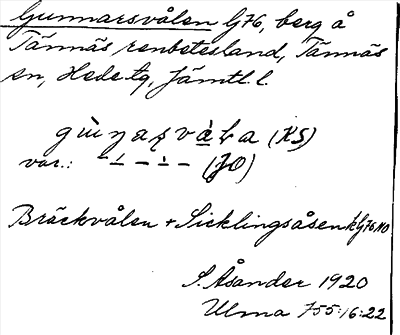 Gunnarsvålen G76, berg å
Tännäs renbetesland, Tännäs
sn, Hede tg, Jämtl. l.
(KS)
var.: (JO)
Bräckvålen + Sicklingsåsen
S. Åsander 1920
Ulma 755:16:22